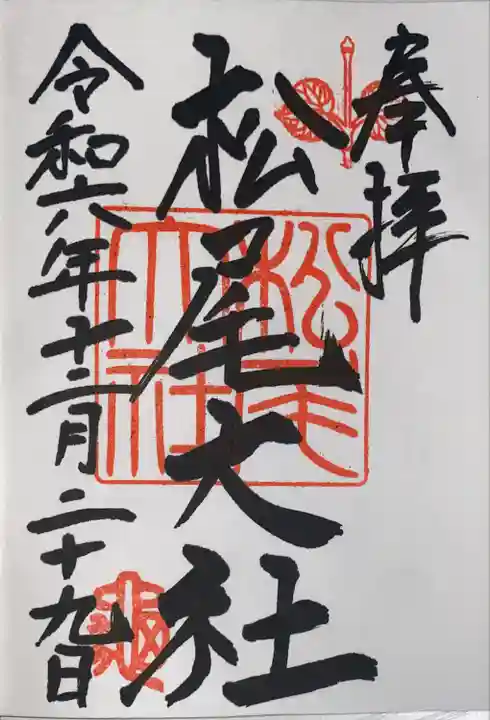 奉拝
松尾大社
令和六年十二月二十九日
松尾大社
亀